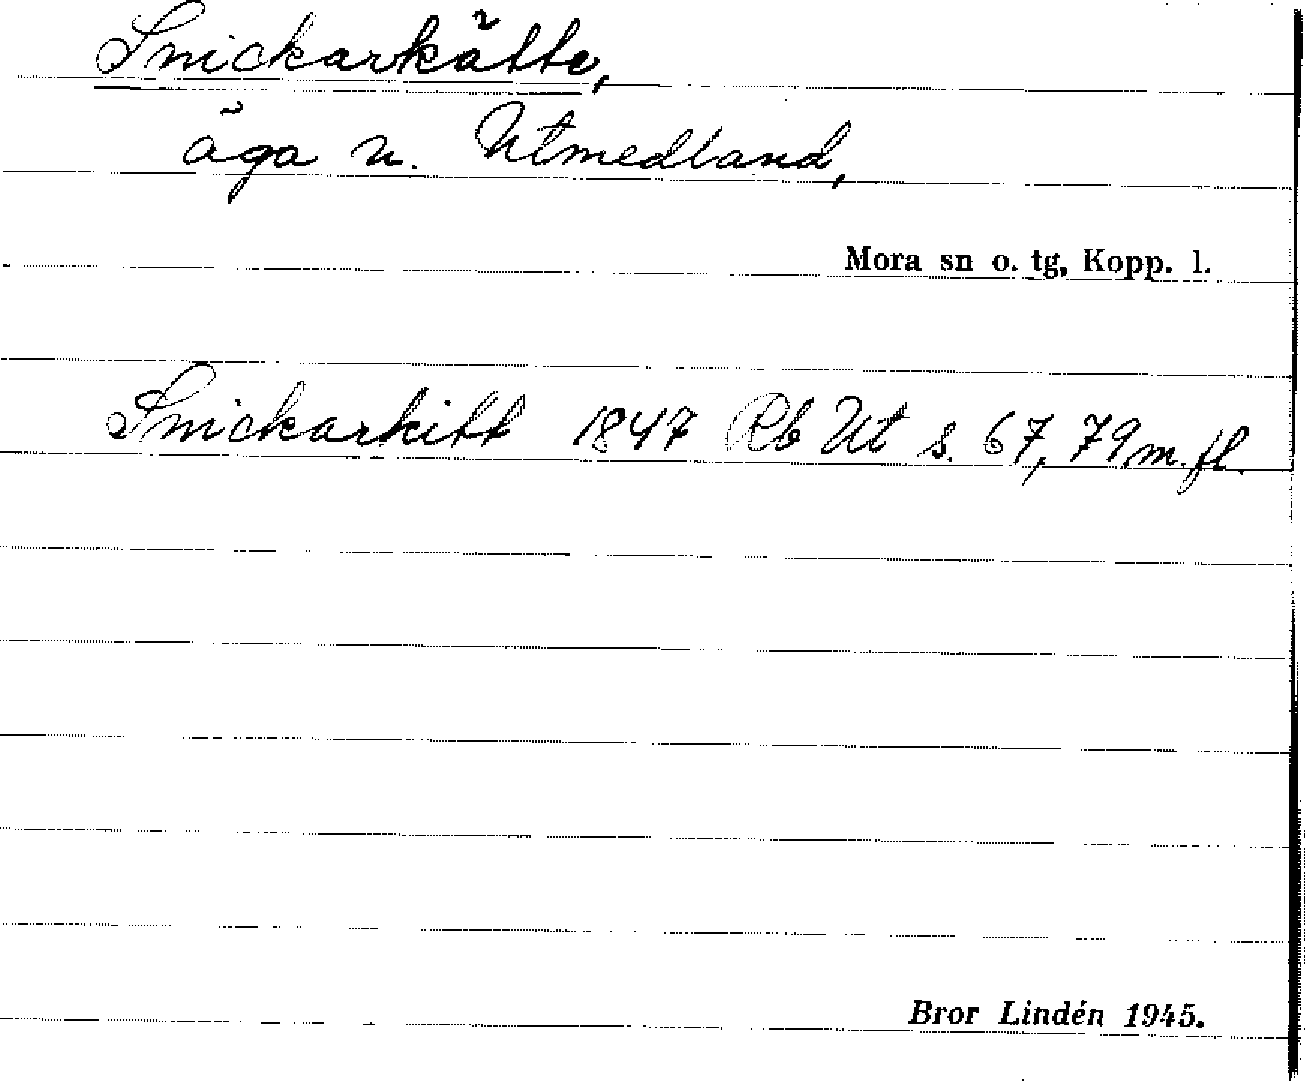 Snickarkätte,
äga u. Utmedland,
Mora sn o. tg, Kopp. l.
Snickarkitt 1847 Rb Ut s. 67, 79 m. fl.
Bror Lindén 1945.